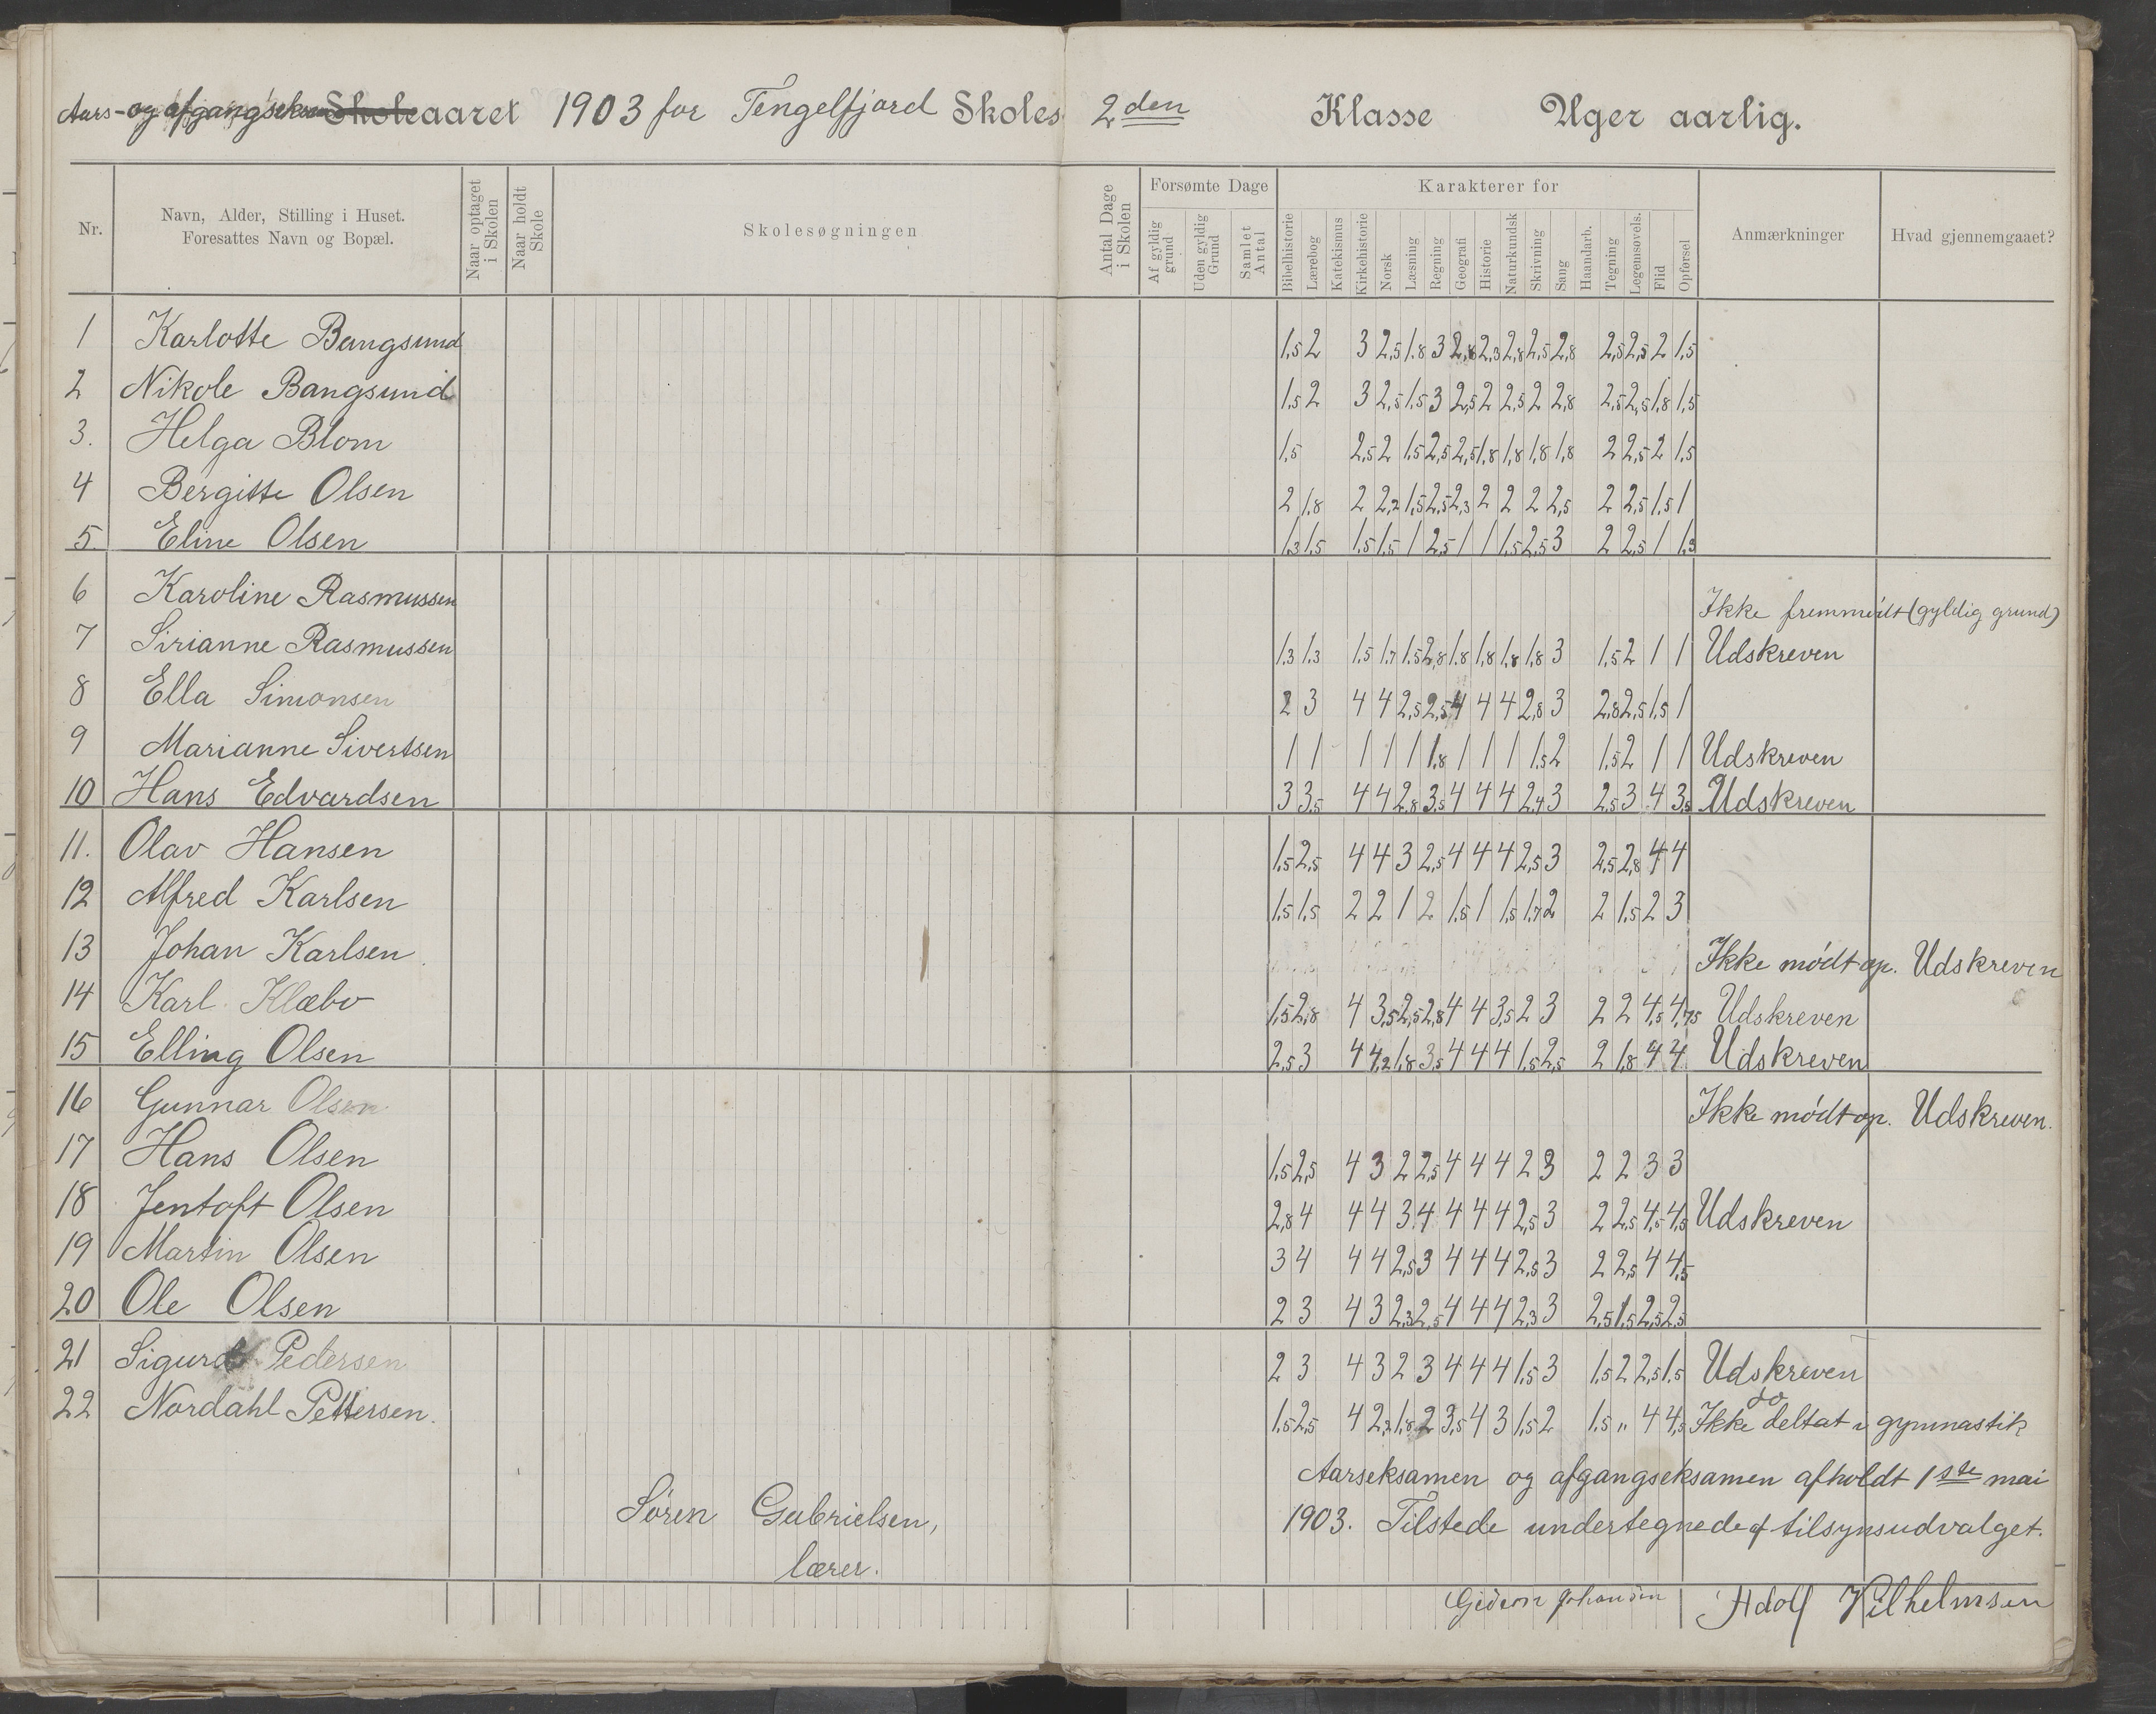 Aars- og afgangseksam Skoleaaret 1903 for Tengelfjord Skoles 2den Klasse Uger aarlig.
Nr. Navn, Alder, Stilling i Huset. Foresattes Navn og Bopæl. Naar optaget i Skolen Naar holdt Skole Skolesøgningen Antal Dage i Skolen Forsømte Dage Af gyldig grund Uden gyldig Grund Samlet Antal Karakterer for Bibelhistorie Lærebog Katekismus Kirkehistorie Norsk Læsning Regning Geografi Historie Naturkundsk Skrivning Sang Haandarb. Tegning Legemsøvels. Flid Opførsel Anmærkninger Hvad gjennemgaaet?
1 Karlotte Bangsund 1,5 2 3 2,5 1,8 3 2,8 2,3 2,8 2,5 2,8 2,5 2,5 2 1,5
2 Nikole Bangsund 1,5 2 3 2,5 1,5 3 2,5 2 2,5 2 2,8 2,5 2,5 1,8 1,5
3. Helga Blom 1,5 2,5 2 1,5 2,5 2,5 1,8 1,8 1,8 1,8 2 2,5 2 1,5
4 Bergitte Olsen 2 1,8 2 2,2 1,5 2,5 2,3 2 2 2 2,5 2 2,5 1,5 1
5. Eline Olsen 1,3 1,5 1,5 1,5 1 2,5 1 1 1,5 2,5 3 2 2,5 1 1,3
6 Karoline Rasmussen Ikke fremmödt (gyldig grund)
7 Sirianne Rasmussen 1,3 1,3 1,5 1,7 1,5 2,8 1,8 1,8 1,8 1,8 3 1,5 2 1 1 Udskreven
8 Ella Simonsen 2 3 4 4 2,5 2,5 4 4 4 2,8 3 2,8 2,5 1,5 1
9 Marianne Sivertsen 1 1 1 1 1 1,8 1 1 1 1,5 2 1,5 2 1 1 Udskreven
10 Hans Edvardsen 3 3,5 4 4 2,8 3,5 4 4 4 2,4 3 2,5 3 4 3,5 Udskreven
11. Olav Hansen 1,5 2,5 4 4 3 2,5 4 4 4 2,5 3 2,5 2,8 4 4
12 Alfred Karlsen 1,5 1,5 2 2 1 2 1,5 1 1,5 1,7 2 2 1,5 2 3
13 Johan Karlsen. Ikke mödt op. Udskreven
14 Karl Klæbo 1,5 2,8 4 3,5 2,5 2,8 4 4 3,5 2 3 2 2 4,5 4,75 Udskreven
15 Elling Olsen 2,5 3 4 4,2 1,8 3,5 4 4 4 1,5 2,5 2 1,8 4 4 Udskreven
16 Gunnar Olsen Ikke mödt op. Udskreven.
17 Hans Olsen 1,5 2,5 4 3 2 2,5 4 4 4 2 3 2 2 3 3
18 Jentoft Olsen 2,8 4 4 4 3 4 4 4 4 2,5 3 2 2,5 4,5 4,5 Udskreven
19 Martin Olsen 3 4 4 4 2,5 3 4 4 4 2,5 3 2 2,5 4 4,5
20 Ole Olsen 2 3 4 3 2,3 2,5 4 4 4 2,3 3 2,5 1,5 2,5 2,5
21 Sigurd Pedersen 2 3 4 3 2 3 4 4 4 1,5 3 1,5 2 2,5 1,5 Udskreven
do
22 Nordahl Pettersen. 1,5 2,5 4 2,2 1,8 2 3,5 4 3 1,5 2 1,5 „ 4 4,5 Ikke deltat i gymnastik
Aarseksamen og afgangseksamen afholdt 1ste mai
1903. Tilstede undertegnede af tilsynsudvalget.
Sören Gabrielsen,
lærer.
Gideon Johansen Adolf Vilhelmsen